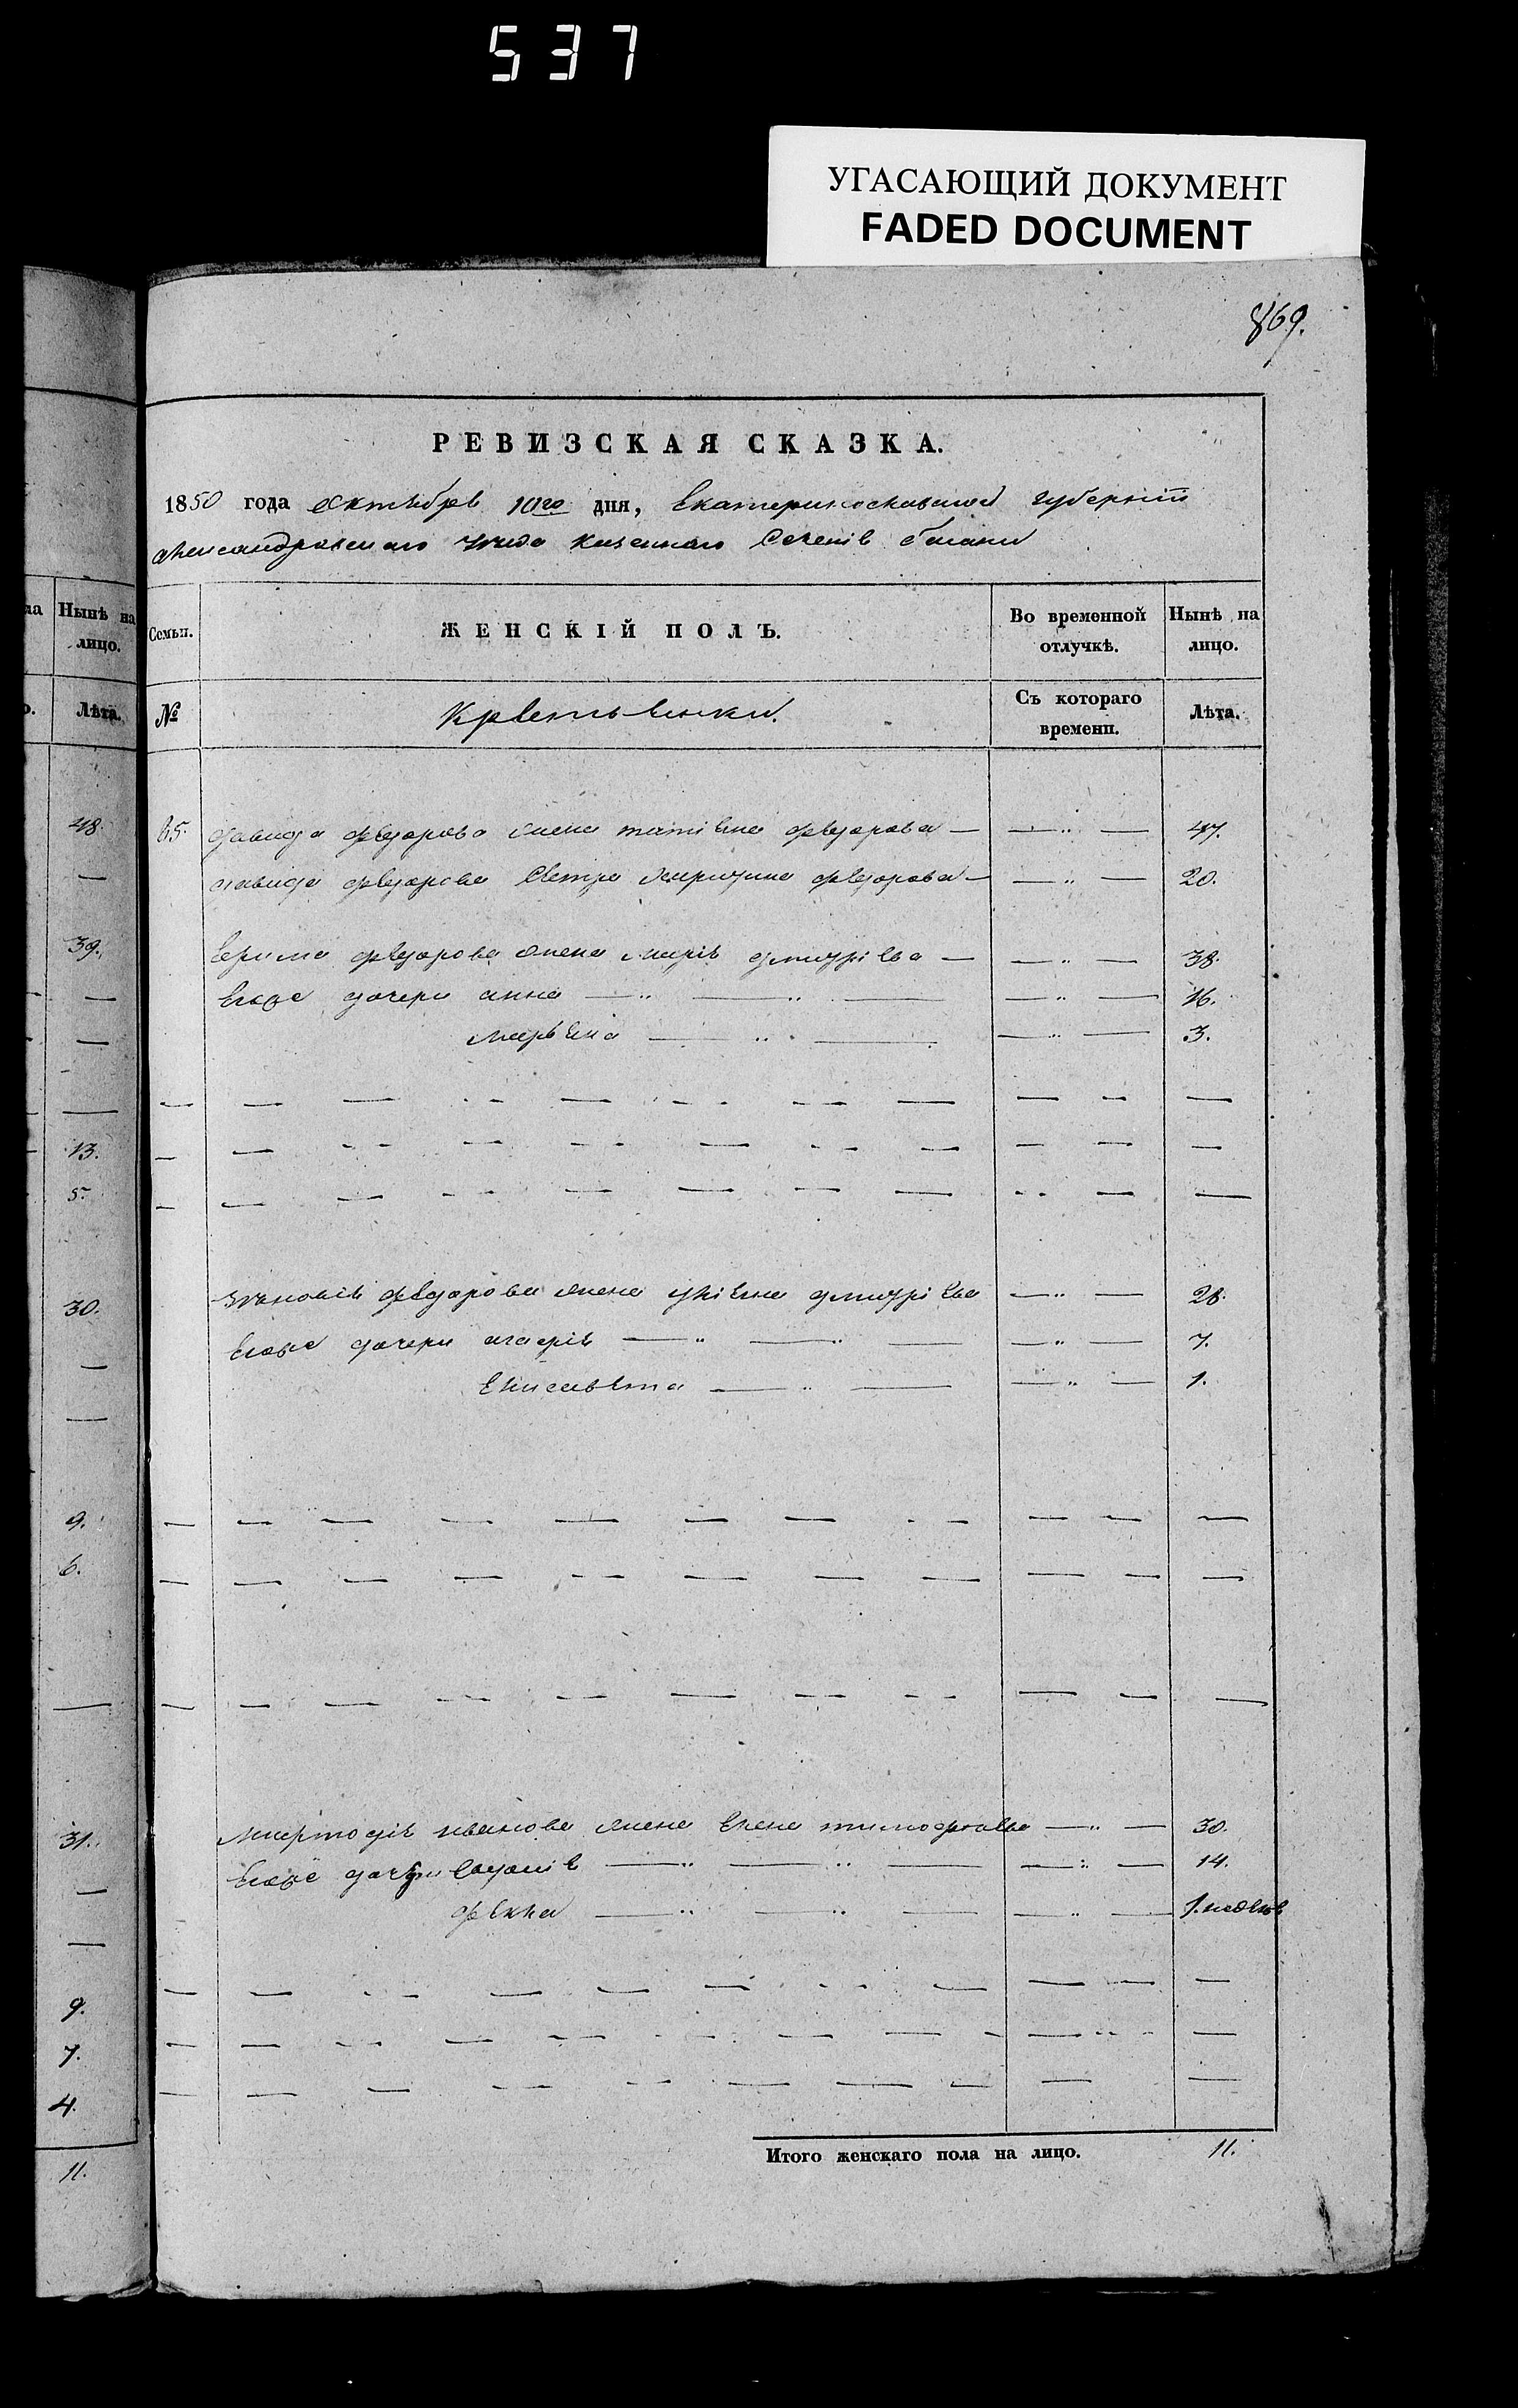 537
УГАСАЮЩИЙ ДОКУМЕНТ
FADED DOCUMENT
869.
РЕВИЗСКАЯ СКАЗКА.
1850 года Октября 10го дня, Екатеринославской губернiи
Александровскаго уезда казеннаго Селенiя
ла Нынѣ на лицо.
Лѣта.
Семьи. ЖЕНСКІЙ ПОЛЪ. Во временной отлучкѣ. Нынѣ на лицо.
№ Крестьянки. Съ котораго времени. Лѣта.
48. 65. давида федорова жена татiяна федорова — — " — 47.
— давида федорова Сестра федорова — — " — 20.
39. федорова жена марiя дмитрiева — — " — 38.
— Ево дочери анна — " — " — — " — 16.
— — " — — " — 3.
13.
5.
30. зѣновiя федорова жена улiяна дмитрiева — " — 28.
— Ево дочери марiя — " — " — — " — 7.
— Елисавета — " — — " — 1.
9.
6.
31. иванова жена Елена тимофеева — " — 30.
— Ево дочери — " — " — — " — 14.
— фекла — " — " — — " — 1. неделя
9.
7.
4.
11. Итого женскаго пола на лицо. 11.